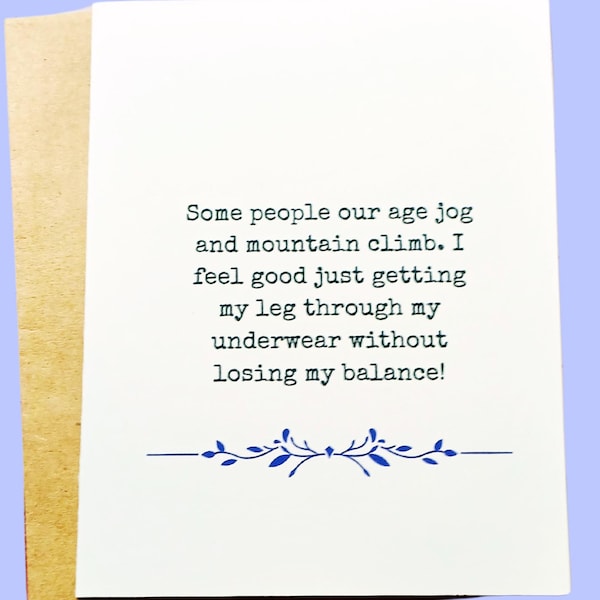 Some people our age jog
and mountain climb. I
feel good just getting
my leg through my
underwear without
losing my balance!